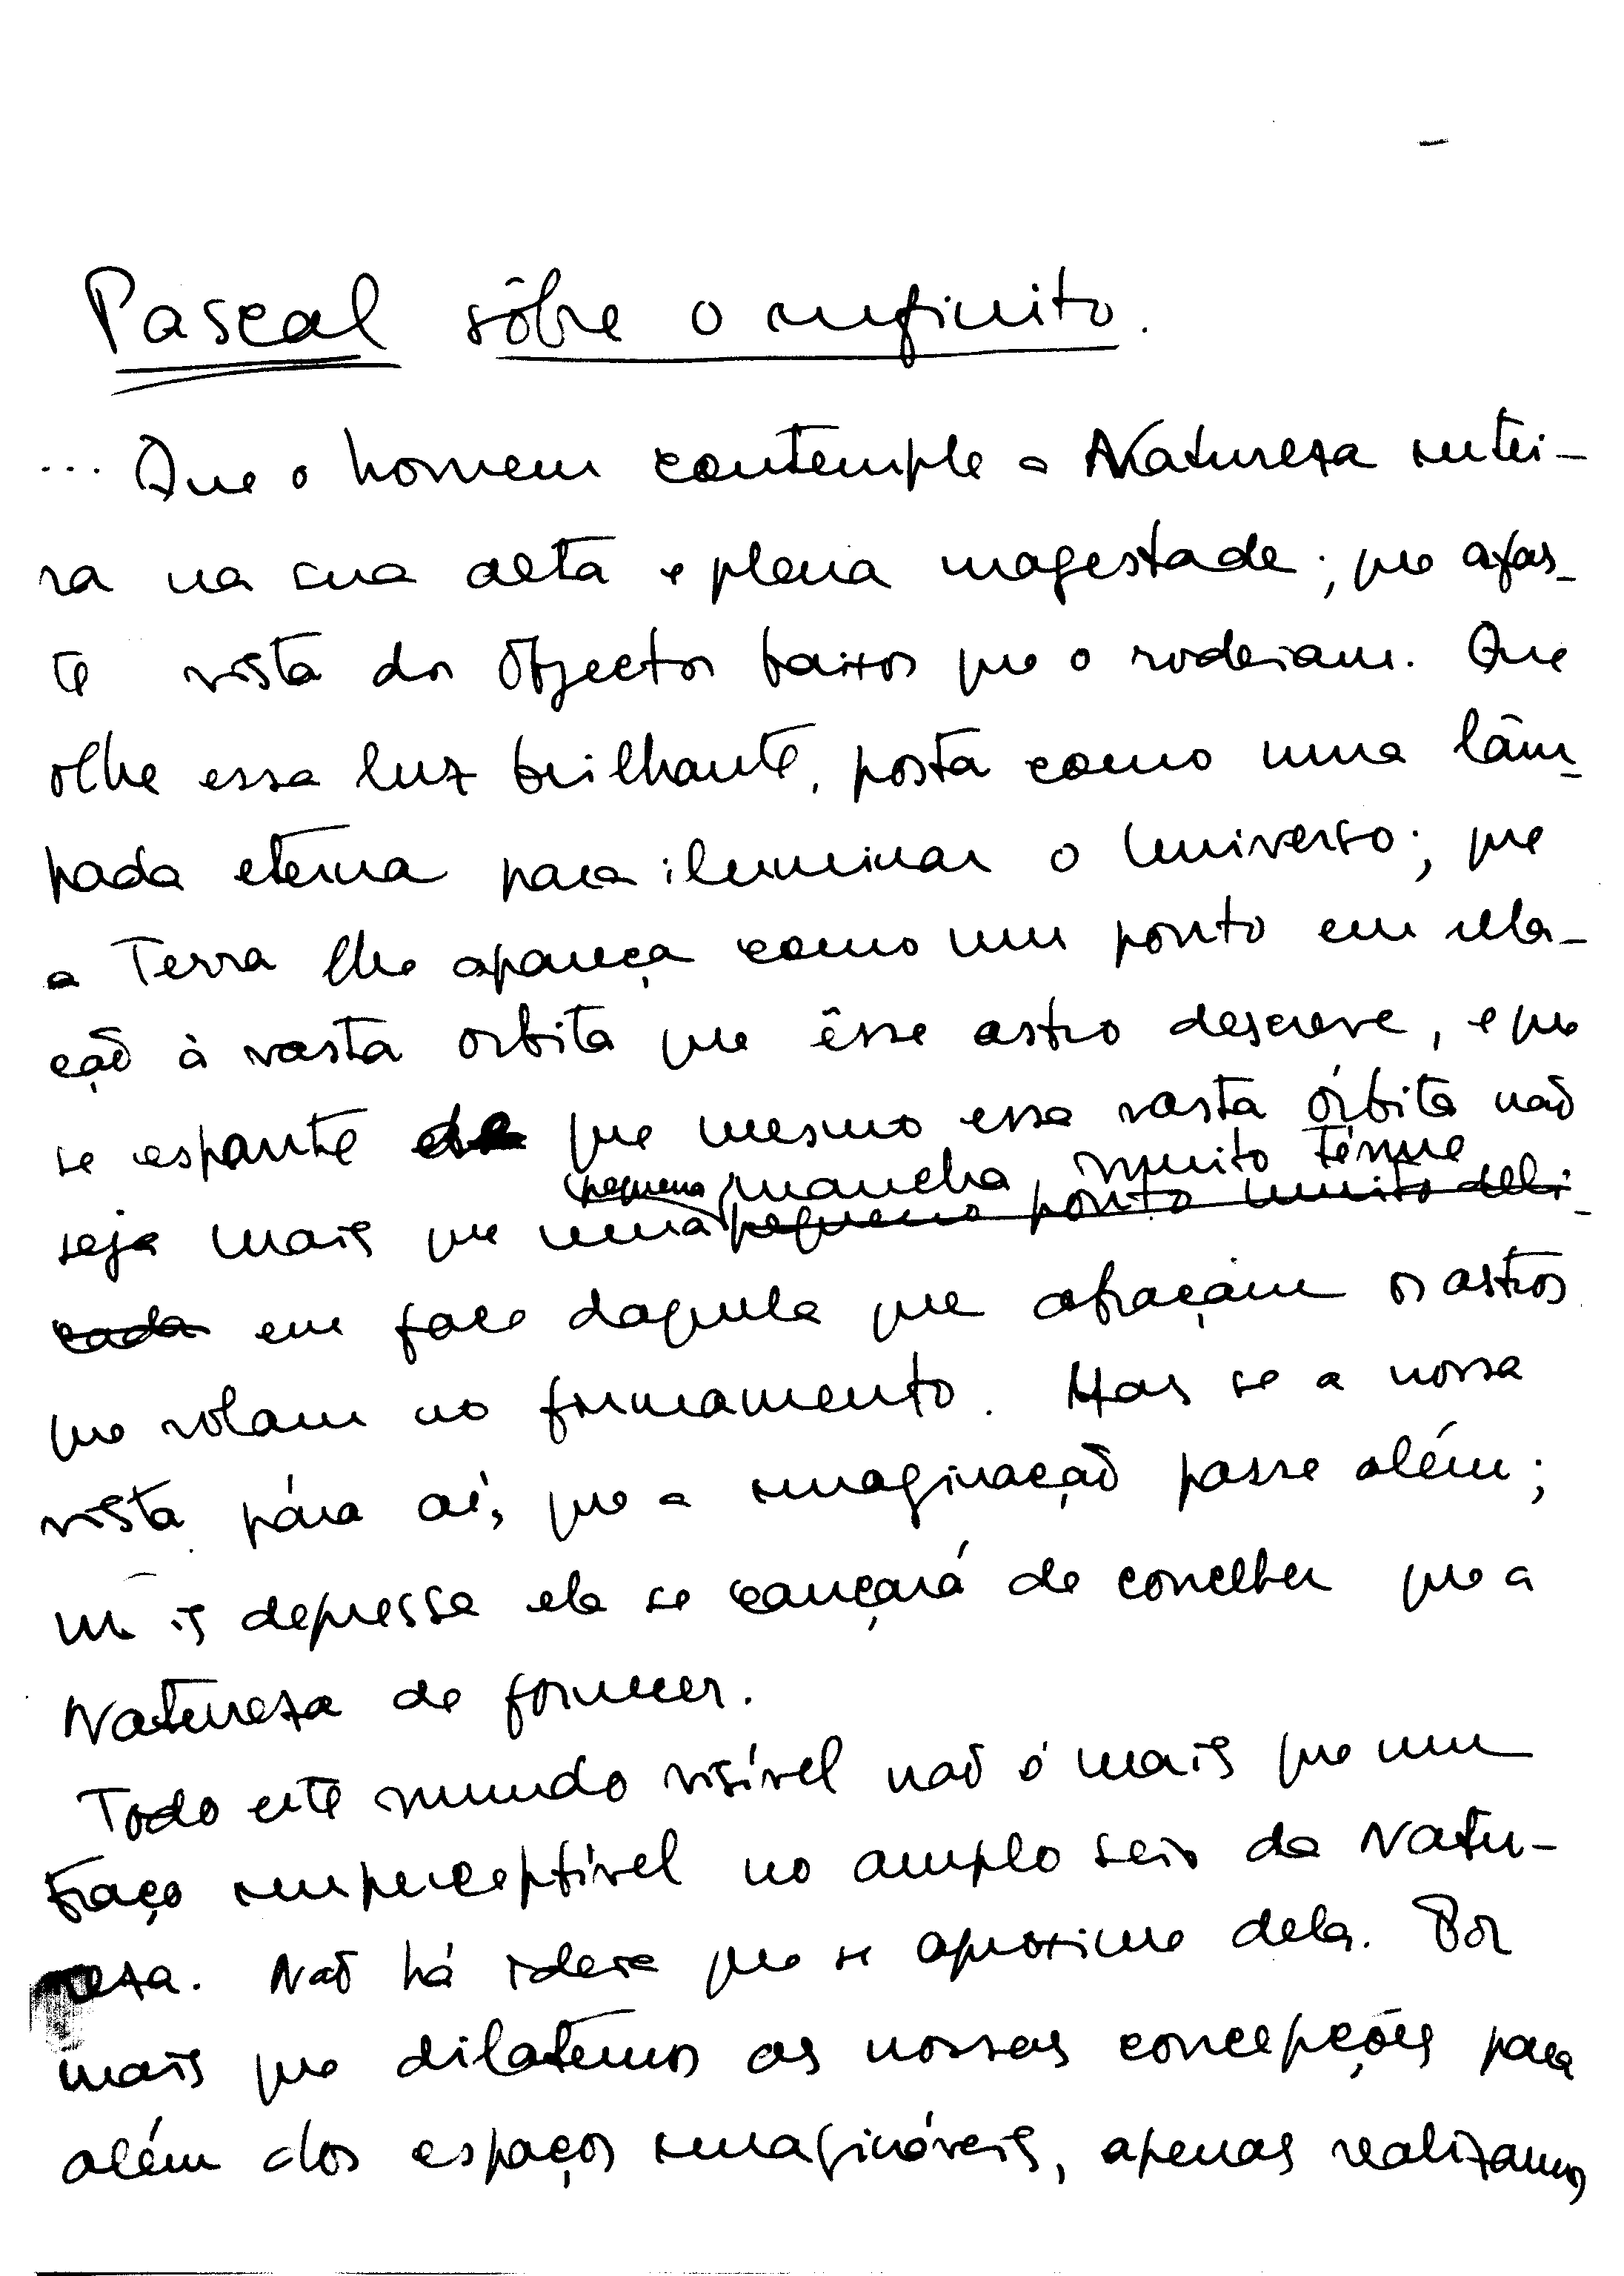 Pascal sôbre o infinito.
... Que o homem contemple a Natureza intei-
ra na sua alta e plena magestade; que afas-
te vista dos objectos baixos que o rodeiam. Que
olhe essa luz brilhante, posta como uma lâm-
pada eterna para iluminar o Universo; que
a Terra lhe apareça como um ponto em rela-
ção à vasta orbita que êsse astro descreve, e que
se espante de que mesmo essa vasta órbita não
pequena mancha, muito ténue
seja mais que uma pequeno ponto muito deli-
cada em face daquela que abraçam os astros
que rolam no firmamento. Mas se a nossa
vista pára aí, que a imaginação passe além;
mais depressa ela se cançará de conceber que a
Natureza de fornecer.
Todo este mundo visível não é mais que um
traço imperceptível no amplo seio da Natu-
reza. Não há ideia que se aproxime dela. Por
mais que dilatemos as nossas concepções para
além dos espaços imagináveis, apenas realizamos